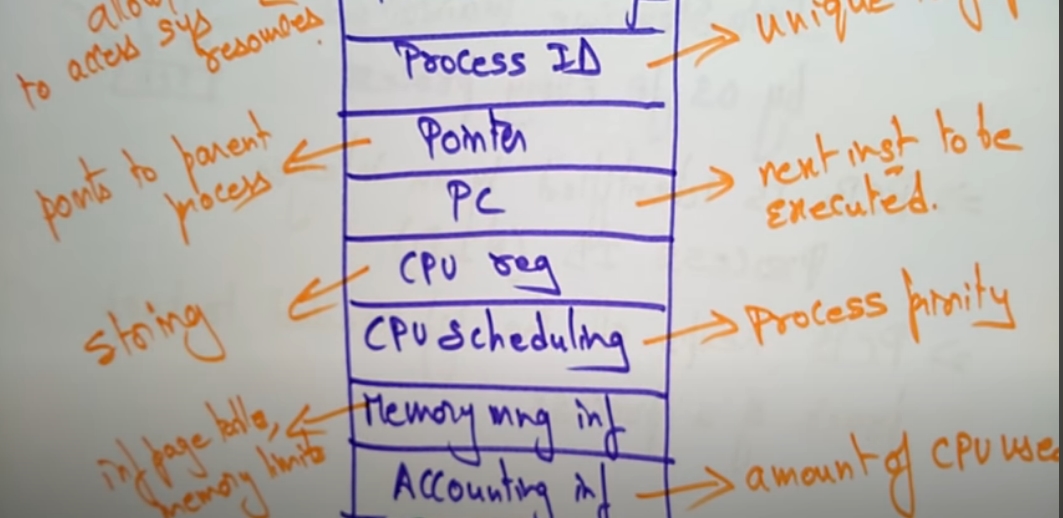 to access sys
resources.
Process ID
unique
Pointer
points to parent
process
PC
next inst to be
executed.
CPU reg
string
CPU scheduling
Process priority
Memory mng inf
inf page table,
memory limits
Accounting inf
amount of CPU used